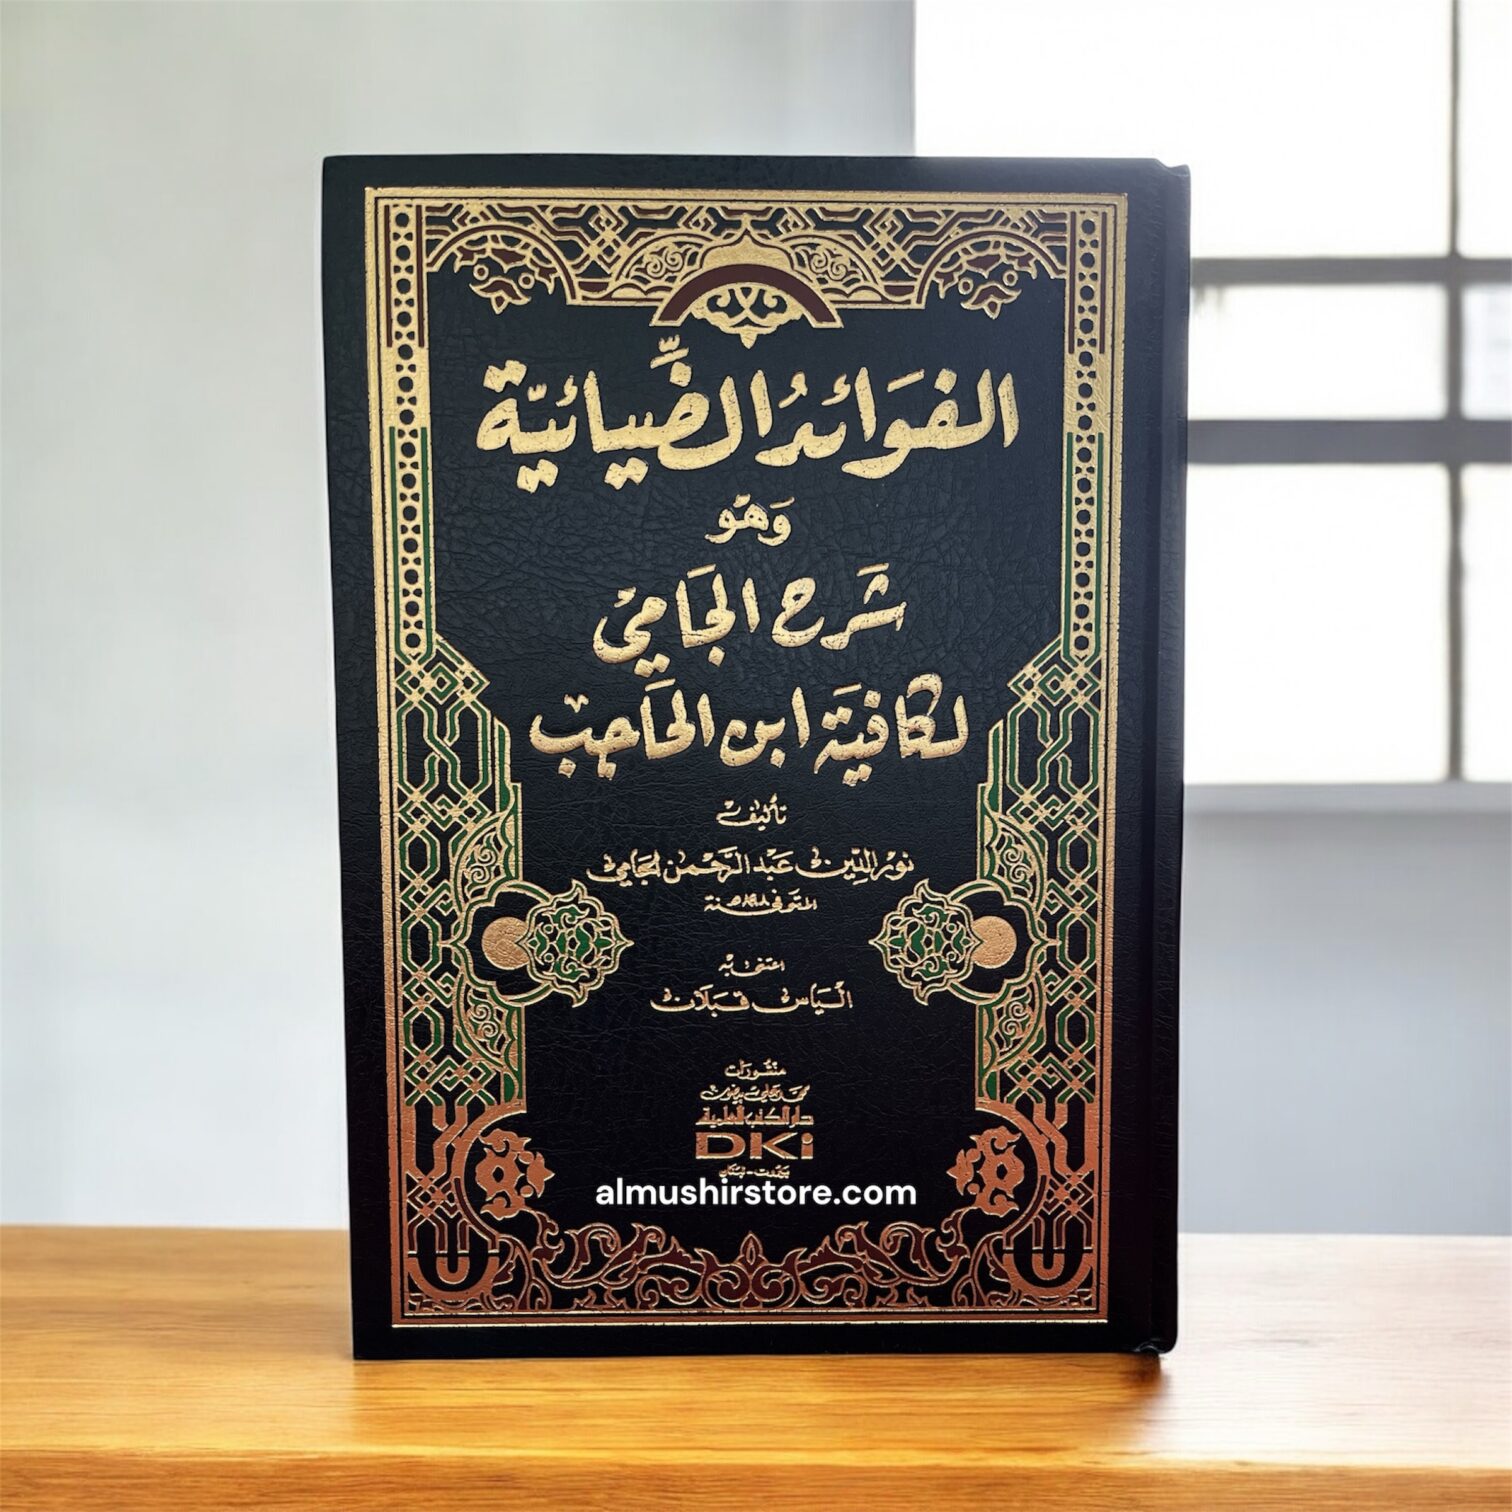 الفَوَائدُ الضِّيائيّة
وَهْو
شَرح الجَامي
لكافيَة ابن الحَاجب
تأليف
نور الدين عَبْد الرَّحْمن الجامي
المتوفى سنة ٨٩٨هـ
اعتنى به
اليَاس قبلان
منشورات
محمد علي بيضون
دار الكتب العلمية
DKi
بيروت - لبنان
almushirstore.com